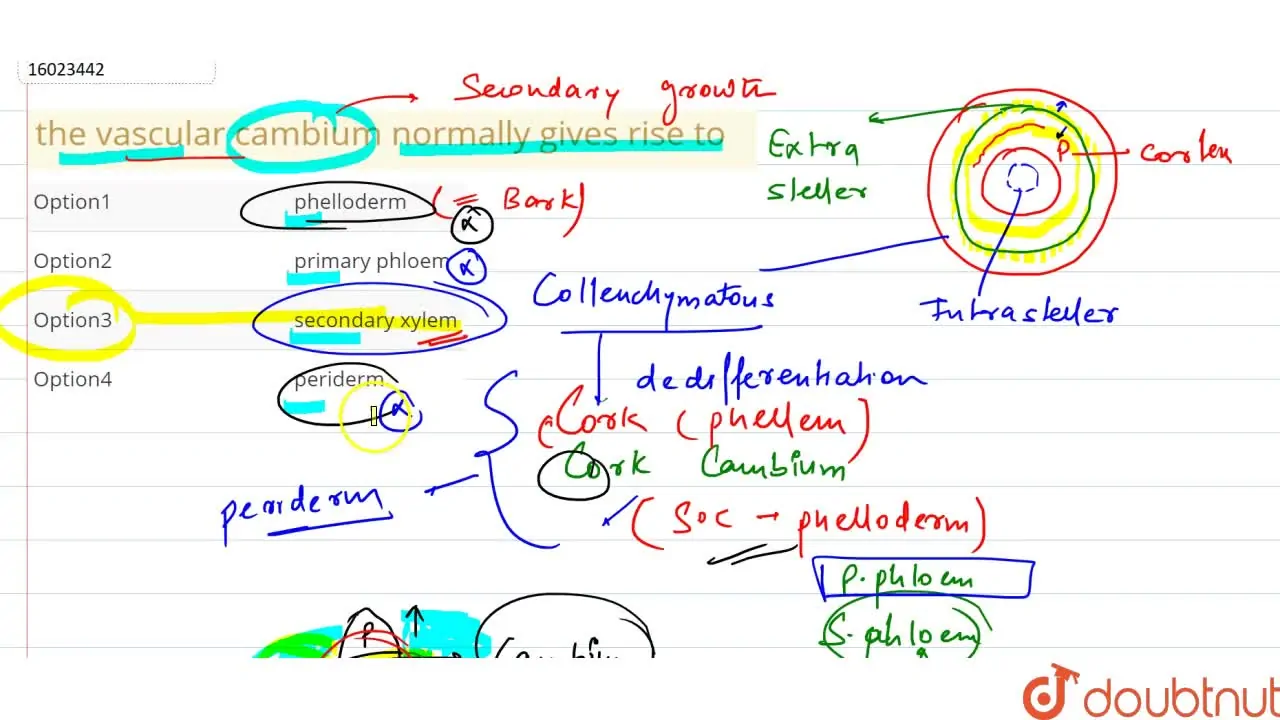 16023442
Secondary growth
the vascular cambium normally gives rise to
Extra
steller
P
Corten
Option1 phelloderm (= Bark)
Option2 primary phloem
Collenchymatous
Intrasteller
Option3 secondary xylem
dedifferentiation
Option4 periderm
Cork (phellem)
Cork Cambium
periderm
(SOC → phelloderm)
P. phloem
S. phloem
P
Cambium
doubtnut